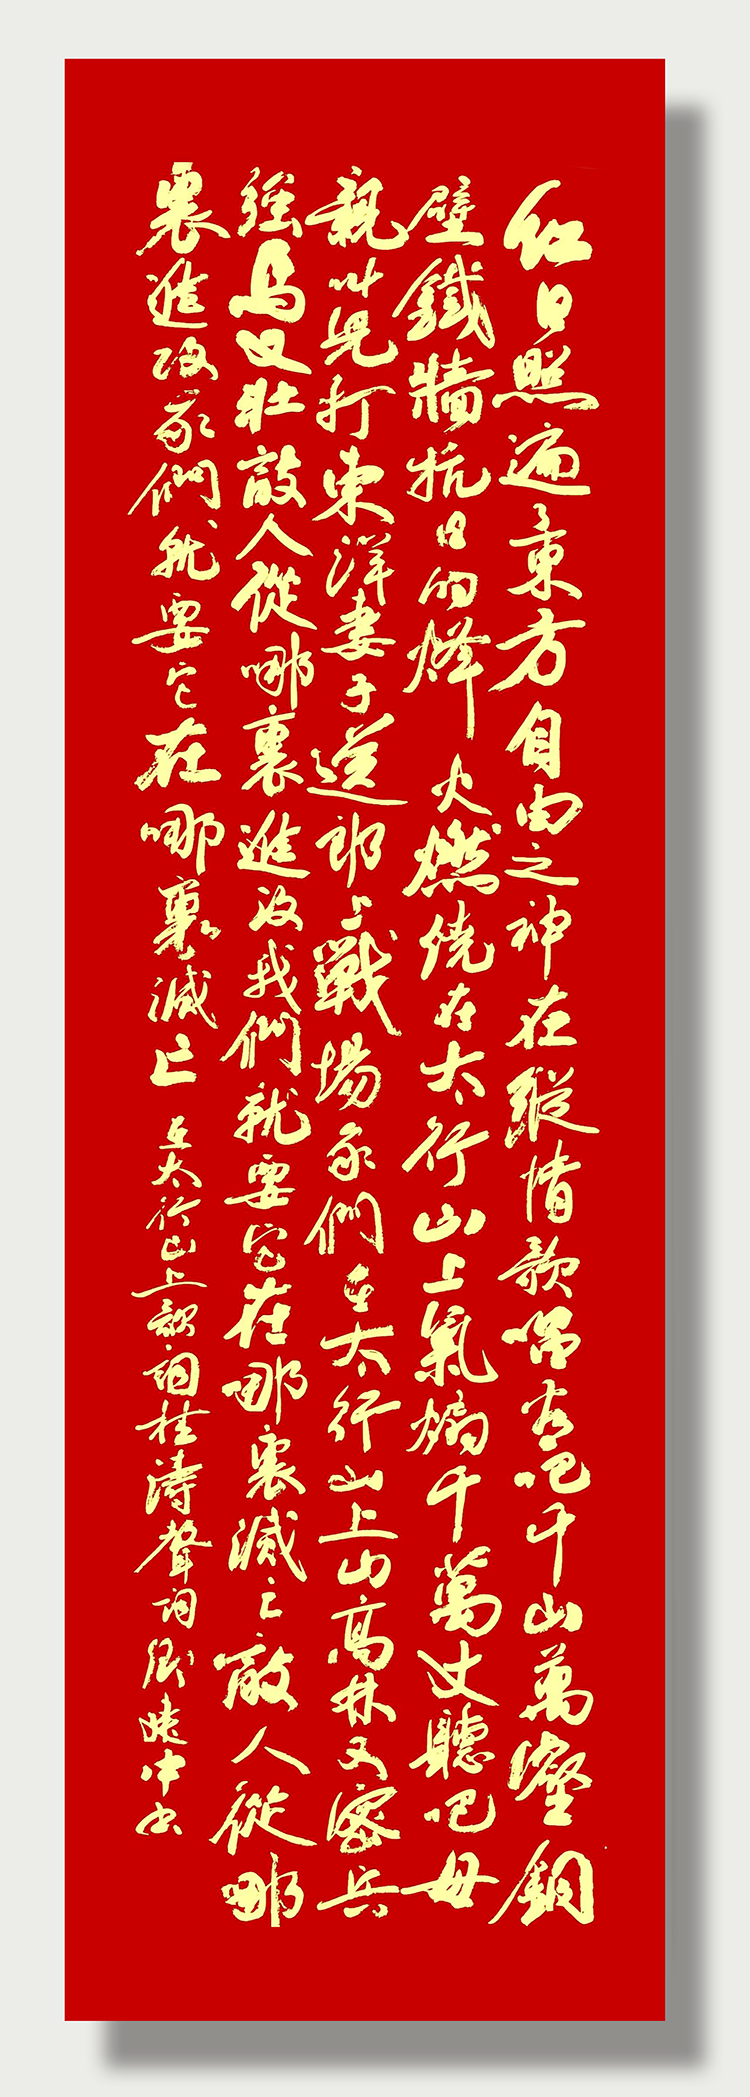 紅日照遍東方自由之神在縱情歌唱看吧千山萬壑銅
壁鐵牆抗日的烽火燃燒在太行山上氣焰千萬丈聽吧母
親叫兒打東洋妻子送郎上戰場我們在太行山上山高林又密兵
強馬又壯敵人從哪裏進攻我們就要它在哪裏滅亡敵人從哪
裏進攻我們就要它在哪裏滅亡 在太行山上歌詞桂濤聲詞 中书